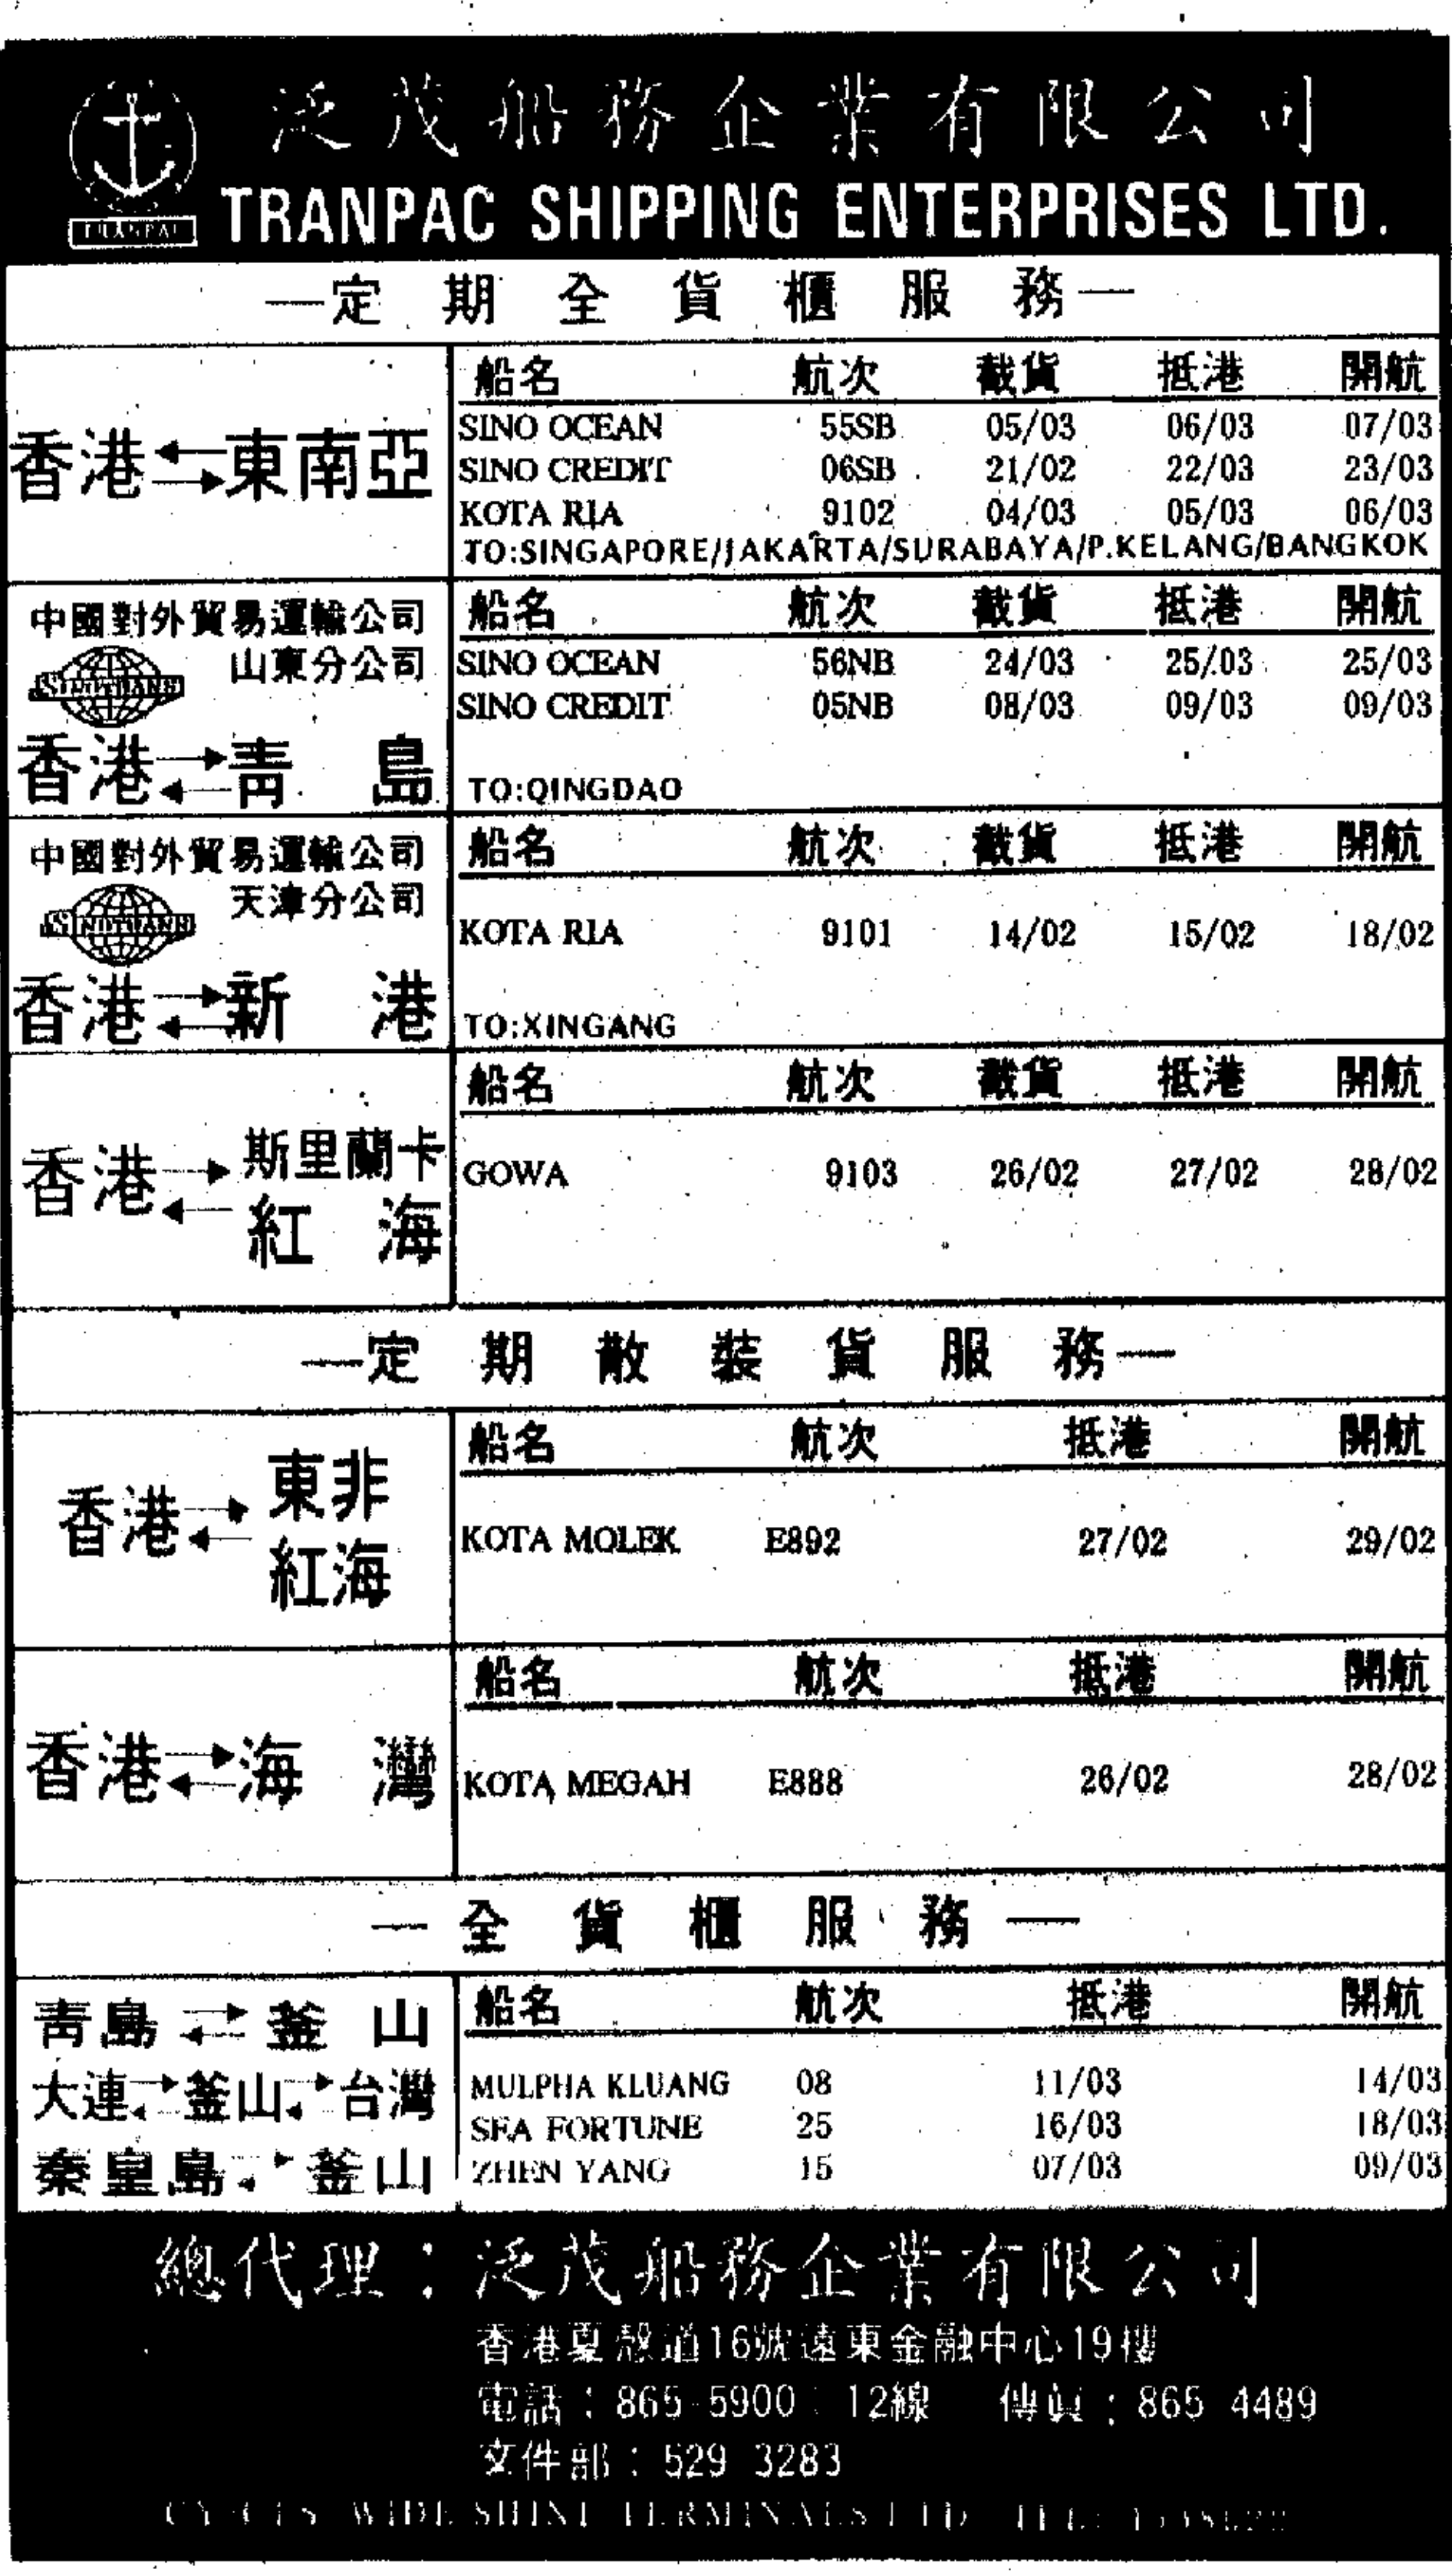 泛茂船務企業有限公司
TRANPAC
TRANPAC SHIPPING ENTERPRISES LTD.
—定期全貨櫃服務—
香港 東南亞
船名 航次 截貨 抵港 開航
SINO OCEAN 55SB 05/03 06/03 07/03
SINO CREDIT 06SB 21/02 22/03 23/03
KOTA RIA 9102 04/03 05/03 06/03
TO:SINGAPORE/JAKARTA/SURABAYA/P.KELANG/BANGKOK
中國對外貿易運輸公司
山東分公司
SINOTRANS
香港 青島
船名 航次 截貨 抵港 開航
SINO OCEAN 56NB 24/03 25/03 25/03
SINO CREDIT 05NB 08/03 09/03 09/03
TO:QINGDAO
中國對外貿易運輸公司
天津分公司
SINOTRANS
香港 新港
船名 航次 截貨 抵港 開航
KOTA RIA 9101 14/02 15/02 18/02
TO:XINGANG
香港 斯里蘭卡
紅海
船名 航次 截貨 抵港 開航
GOWA 9103 26/02 27/02 28/02
—定期散裝貨服務—
香港 東非
紅海
船名 航次 抵港 開航
KOTA MOLEK E892 27/02 29/02
香港 海灣
船名 航次 抵港 開航
KOTA MEGAH E888 26/02 28/02
—全貨櫃服務—
青島 釜山
大連 釜山 台灣
秦皇島 釜山
船名 航次 抵港 開航
MULPHA KLUANG 08 11/03 14/03
SEA FORTUNE 25 16/03 18/03
ZHEN YANG 15 07/03 09/03
總代理：泛茂船務企業有限公司
香港夏慤道16號遠東金融中心19樓
電話：865 5900 12線 傳真：865 4489
文件部：529 3283
WIDE SHINE TERMINALS LTD TEL: